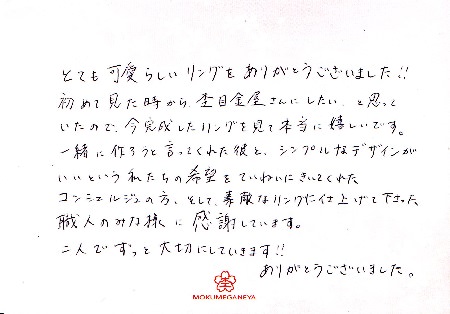 とても可愛らしいリングをありがとうございました!!
初めて見た時から、杢目金屋さんにしたい、と思って
いたので、今完成したリングを見て本当に嬉しいです。
一緒に作ろうと言ってくれた彼と、シンプルなデザインが
いいという私たちの希望をていねいにきいてくれた
コンシェルジュの方、そして、素敵なリングに仕上げて下さった
職人のみな様に感謝しています。
二人でずっと大切にしていきます!!
ありがとうございました。
杢
MOKUMEGANEYA